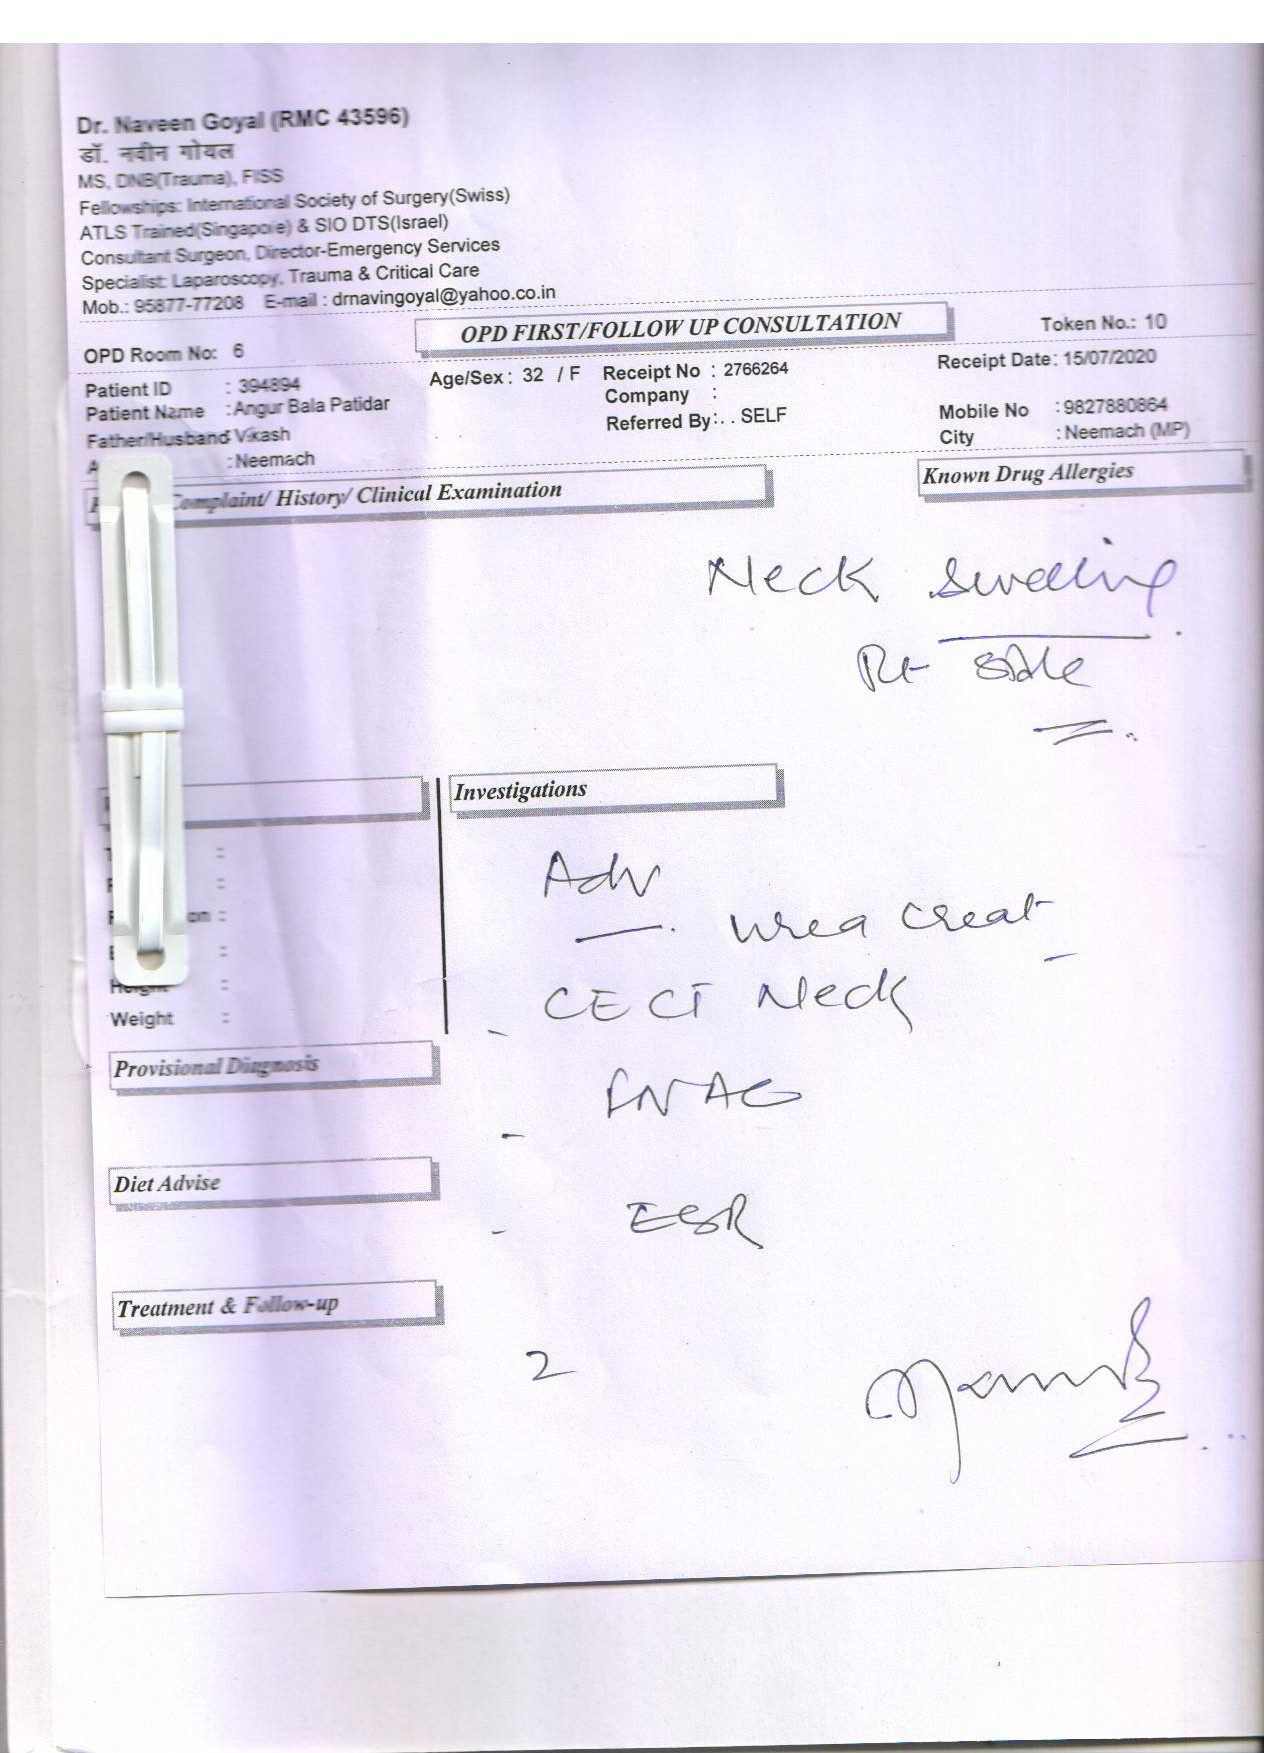 Dr. Naveen Goyal (RMC 43596)
डॉ. नवीन गोयल
MS, DNB(Trauma), FISS
Fellowships: International Society of Surgery(Swiss)
ATLS Trained(Singapore) & SIO DTS(Israel)
Consultant Surgeon, Director-Emergency Services
Specialist: Laparoscopy, Trauma & Critical Care
Mob.: 95877-77208 E-mail : drnavingoyal@yahoo.co.in
OPD FIRST/FOLLOW UP CONSULTATION
Token No.: 10
OPD Room No: 6
Patient ID : 394894 Age/Sex : 32 / F Receipt No : 2766264 Receipt Date : 15/07/2020
Patient Name : Angur Bala Patidar Company : Mobile No : 9827880864
Father/Husband Vikash Referred By : . . SELF City : Neemach (MP)
: Neemach
Complaint/ History/ Clinical Examination Known Drug Allergies
Neck Swelling
Rt side
Investigations
Adv
Urea Creat
- CECT Neck
- FNAC
- ESR
Height :
Weight :
Provisional Diagnosis
Diet Advise
Treatment & Follow-up
2